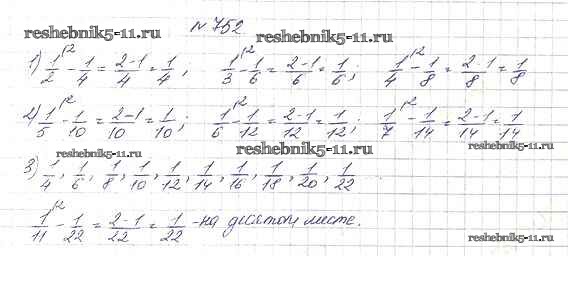 №752
reshebnik5-11.ru reshebnik5-11.ru
1) 1/2 \2 - 1/4 = 2-1/4 = 1/4; 1/3 \2 - 1/6 = 2-1/6 = 1/6; 1/4 \2 - 1/8 = 2-1/8 = 1/8
2) 1/5 \2 - 1/10 = 2-1/10 = 1/10; 1/6 \2 - 1/12 = 2-1/12 = 1/12; 1/7 \2 - 1/14 = 2-1/14 = 1/14
reshebnik5-11.ru reshebnik5-11.ru reshebnik5-11.ru
3) 1/4, 1/6, 1/8, 1/10, 1/12, 1/14, 1/16, 1/18, 1/20, 1/22
1/11 \2 - 1/22 = 2-1/22 = 1/22 - на десятом месте.
reshebnik5-11.ru